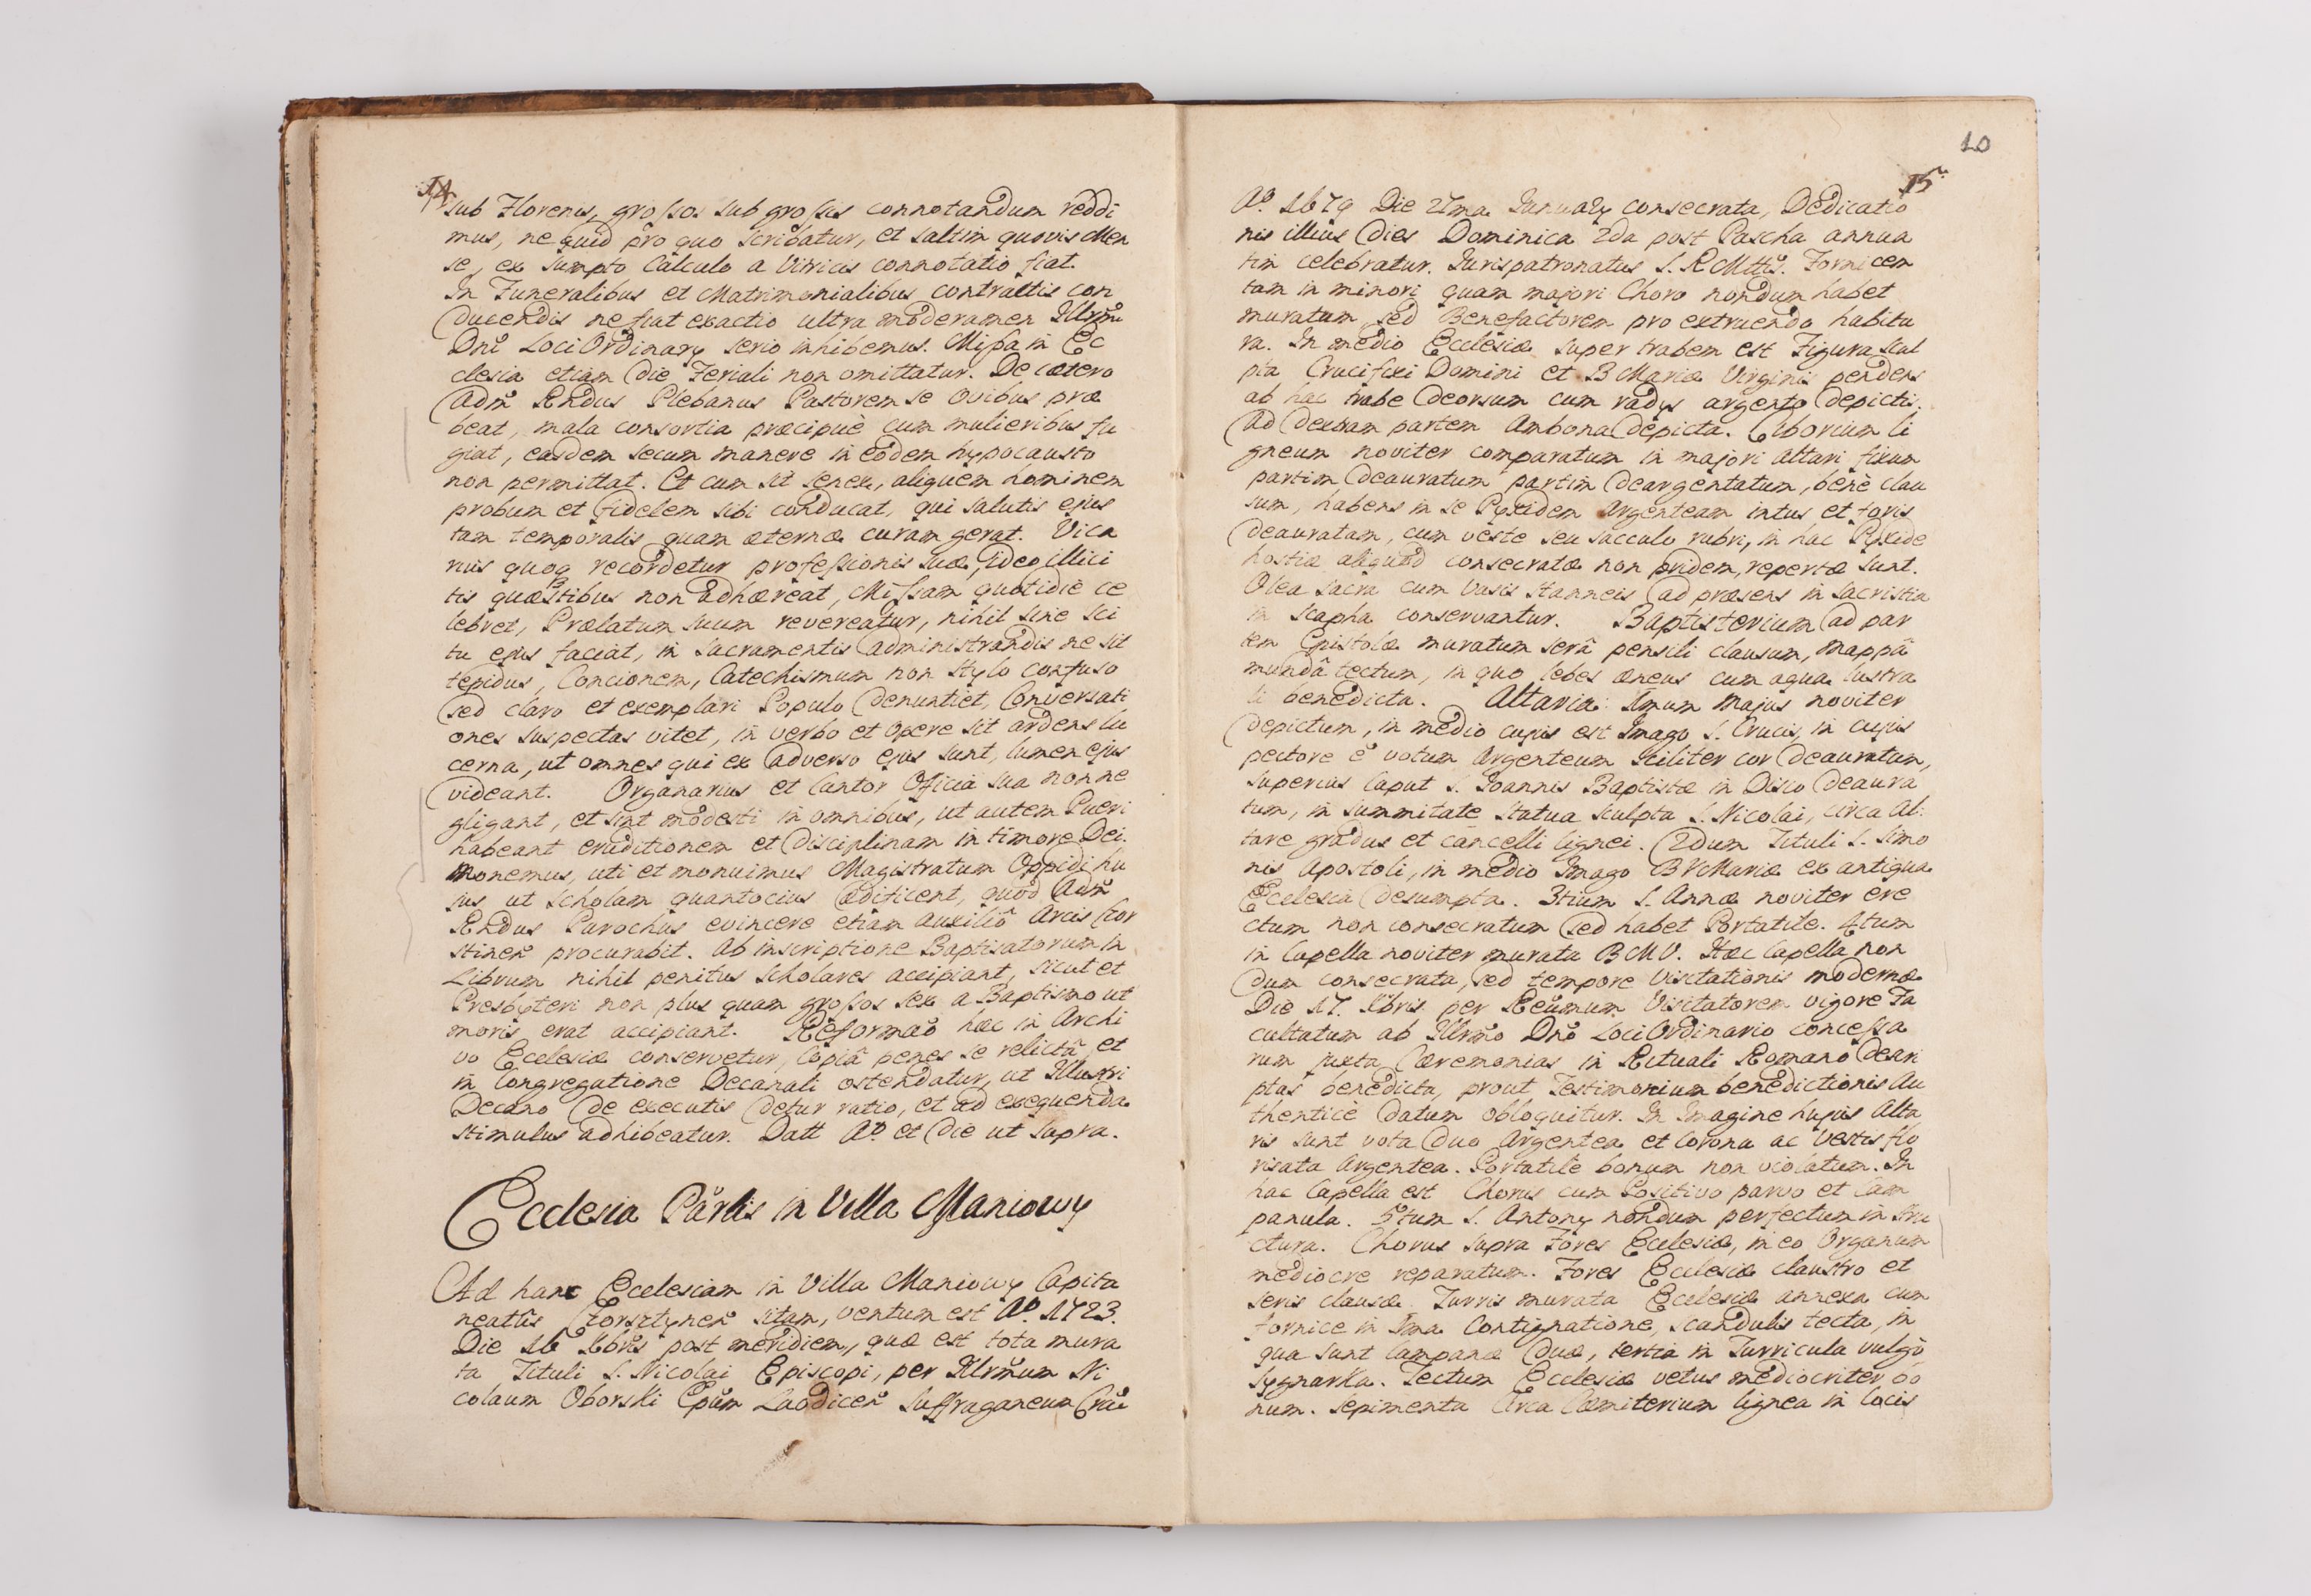 14
sub Florenis, grossos sub grossis connotandum reddi
mus, ne quid pro quo scribatur, et saltim quovis Men
se, ex sumpto Calculo a Vitricis connotatio fiat.
In Funeralibus et Matrimonialibus contractis con
ducendis ne fiat exactio ultra moderamen Illrmi
Dni Loci Ordinarÿ serio inhibemus. Missa in Ec
clesia etiam die Feriali non omittatur. De cætero
Adm Rndus Plebanus Pastorem se ovibus præ
beat, mala consortia præcipuè cum mulieribus fu
giat, easdem secum manere in eodem hypocausto
non permittat. Et cum sit senex, aliquem hominem
probum et fidelem sibi conducat, qui salutis ejus
tam temporalis quam æternæ curam gerat. Vica
rius quoq recordetur professionis suæ, ideo illici
tis quæstibus non adhæreat, Missam quotidiè ce
lebret, Prælatum suum revereatur, nihil sine sci
tu ejus faciat, in Sacramentis administrandis ne sit
tepidus, Concionem, Catechismum non stylo confuso
sed claro et exemplari Populo denuntiet, Conversati
ones suspectas vitet, in verbo et opere sit ardens lu
cerna, ut omnes qui ex adverso ejus sunt, lumen ejus
videant. Organarius et Cantor Officia sua non ne
gligant, et sint modesti in omnibus, ut autem Pueri
habeant eruditionem et disciplinam in timore Dei.
Monemus, uti et monuimus Magistratum Oppidi hu
jus, ut Scholam quantocius ædificent, quod Adm
Rndus Parochus evincere etiam auxiliô Arcis Czor
stinen procurabit. Ab inscriptione Baptisatorum in
Librum nihil penitus Scholares accipiant, sicut et
Presbyteri non plus quam grossos sex a Baptismo ut
moris erat accipiant. Reformao hæc in Archi
vo Ecclesiæ conservetur, Copiâ penes se relictâ, et
in Congregatione Decanali ostendatur, ut Illustri
Decano de executis detur ratio, et ad exequenda
stimulus adhibeatur. Datt Aº. et die ut supra.
Ecclesia Parlis in Villa Maniowy
Ad hanc Ecclesiam in Villa Maniowy Capita
neattis Czorsztynen sitam, ventum est Aº. 1723.
Die 16 Xbris post meridiem, quæ est tota mura
ta Tituli S. Nicolai Episcopi, per Illrmum Ni
colaum Oborski Epum Laodicen Suffraganeum Crac
10
15
Aº. 1679 Die 27ma Januarÿ consecrata, Dedicatio
nis illius dies Dominica 2da post Pascha annua
tim celebratur. Jurispatronatus S. R Mttis. Fornicem
tam in minori quam majori Choro nondum habet
muratum, sed Benefactorem pro extruendo habitu
ra. In medio Ecclesiæ super trabem est Figura scul
pta Crucifixi Domini et B Mariæ Virginis pendens
ab hac trabe deorsum cum radÿs argento depictis.
Ad dextram partem Ambona depicta. Ciborium li
gneum noviter comparatum in majori Altari fixum
partim deauratum partim deargentatum, benè clau
sum, habens in se Pyxidem Argenteam intus et foris
deauratam, cum veste seu sacculo rubri, in hac Pyxide
hostiæ aliquid consecratæ non pridem, repertæ sunt.
Olea Sacra cum Vasis stanneis ad præsens in Sacristia
in Scapha conservantur. Baptisterium ad par
tem Epistolæ muratum serâ pensili clausum, mappâ
mundâ tectum, in quo lebes æneus cum aqua lustra
li benedicta. Altaria: Imum Majus noviter
depictum, in medio cujus est Imago S. Crucis, in cujus
pectore e votum Argenteum sciliter cor deauratum,
superius Caput S. Joannis Baptistæ in Disco deaura
tum, in summitate Statua sculpta S. Nicolai, circa Al:
tare gradus et cancelli lignei. 2dum Tituli S. Simo
nis Apostoli, in medio Imago B V Mariæ ex antiqua
Ecclesia desumpta. 3tium S. Annæ noviter ere
ctum non consecratum sed habet Portatile. 4tum
in Capella noviter murata B M V. Hæc Capella non
dum consecrata, sed tempore Visitationis modernæ
Die 17. Xbris per Reumum Visitatorem vigore Fa
cultatum ab Illrmo Dno Loci Ordinario concessa
rum juxta Cæremonias in Rituali Romano descri
ptas benedicta, prout Testimonium benedictionis Au
thenticè datum obloquitur. In Imagine hujus Alta
ris sunt vota duo Argentea et Corona ac Vestis flo
risata Argentea. Portatile bonum non violatum. In
hac Capella est Chorus cum Positivo parvo et Cam
panula. 5tum S. Antonÿ nondum perfectum in stru
ctura. Chorus supra Fores Ecclesiæ, in eo Organum
mediocre reparatum. Fores Ecclesiæ claustro et
seris clausæ. Turris murata Ecclesiæ annexa cum
fornice in Ima Contignatione, scandulis tecta, in
qua sunt Campanæ duæ, tertia in Turricula vulgò
Sygnarka. Tectum Ecclesiæ vetus mediocriter bo
num. Sepimenta Circa Cæmiterium lignea in locis